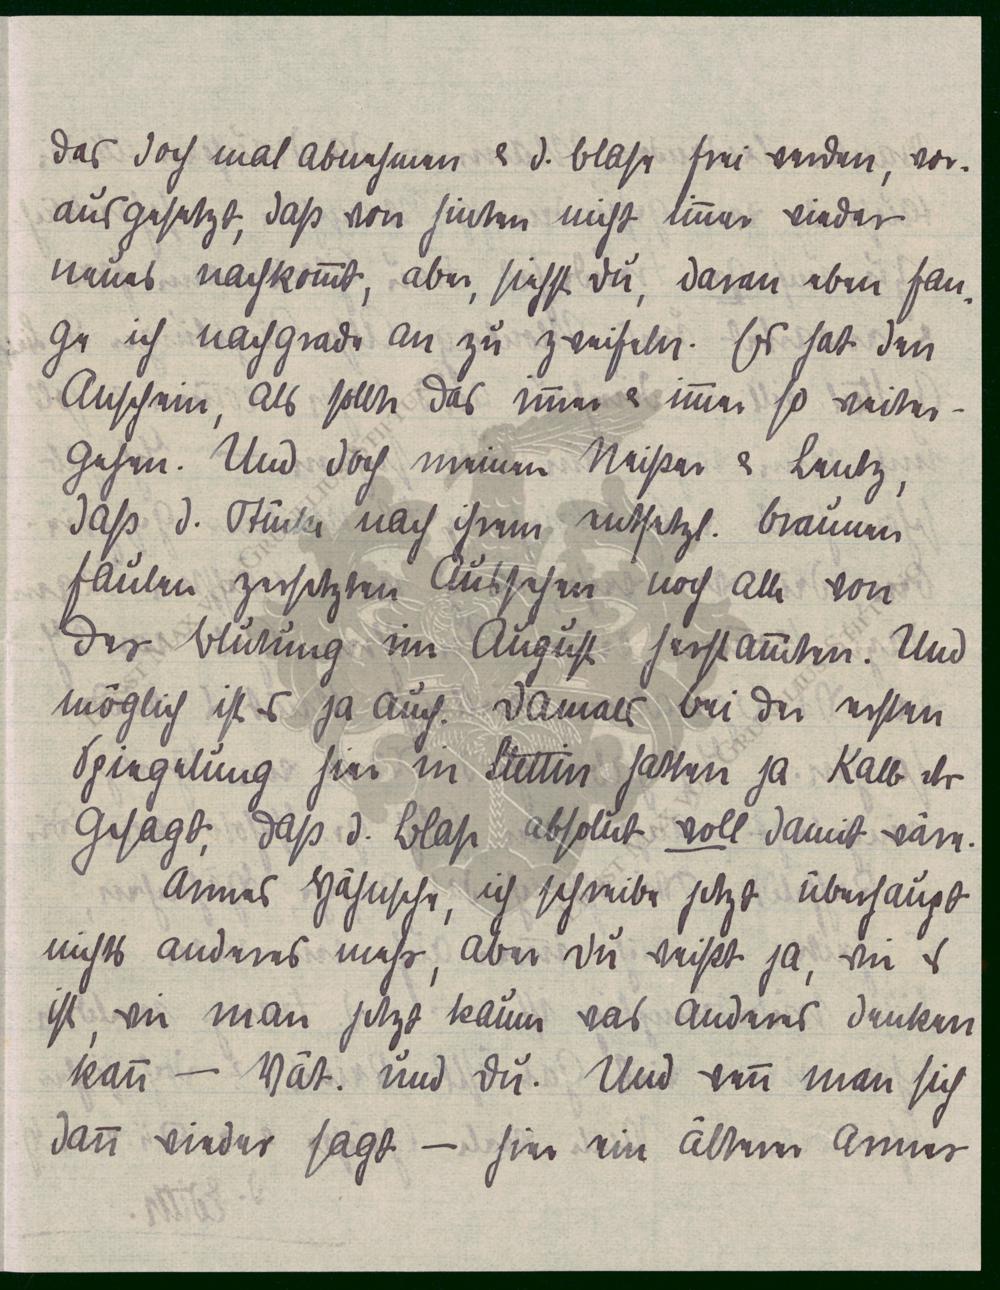 das doch mal abnehmen & d. Blase frei werden, vor-
ausgesetzt, daß von hinten nicht im̅er wieder
neues nachkom̅t, aber, siehst du, daran eben fan-
ge ich nachgrade an zu zweifeln. Es hat den
Anschein, als sollte das im̅er & im̅er so weiter-
gehen. Und doch meinen Neißer & Lentz,
daß d. Stücke nach ihrem entsetzl. braunen
faulen zersetzten Aussehen noch alle von
der Blutung im August herstam̅ten. Und
möglich ist es ja auch. Damals bei der ersten
Spiegelung hier in Stettin hatten ja Kalb etc
gesagt, daß d. Blase absolut voll damit wäre.
Armes, ich schreibe jetzt überhaupt
nichts anderes mehr, aber du weißt ja, wie es
ist, wie man jetzt kaum was anderes denken
kan̅ — Vät. und du. Und wen̅ man sich
dan̅ wieder sagt — hier ein älterer armer